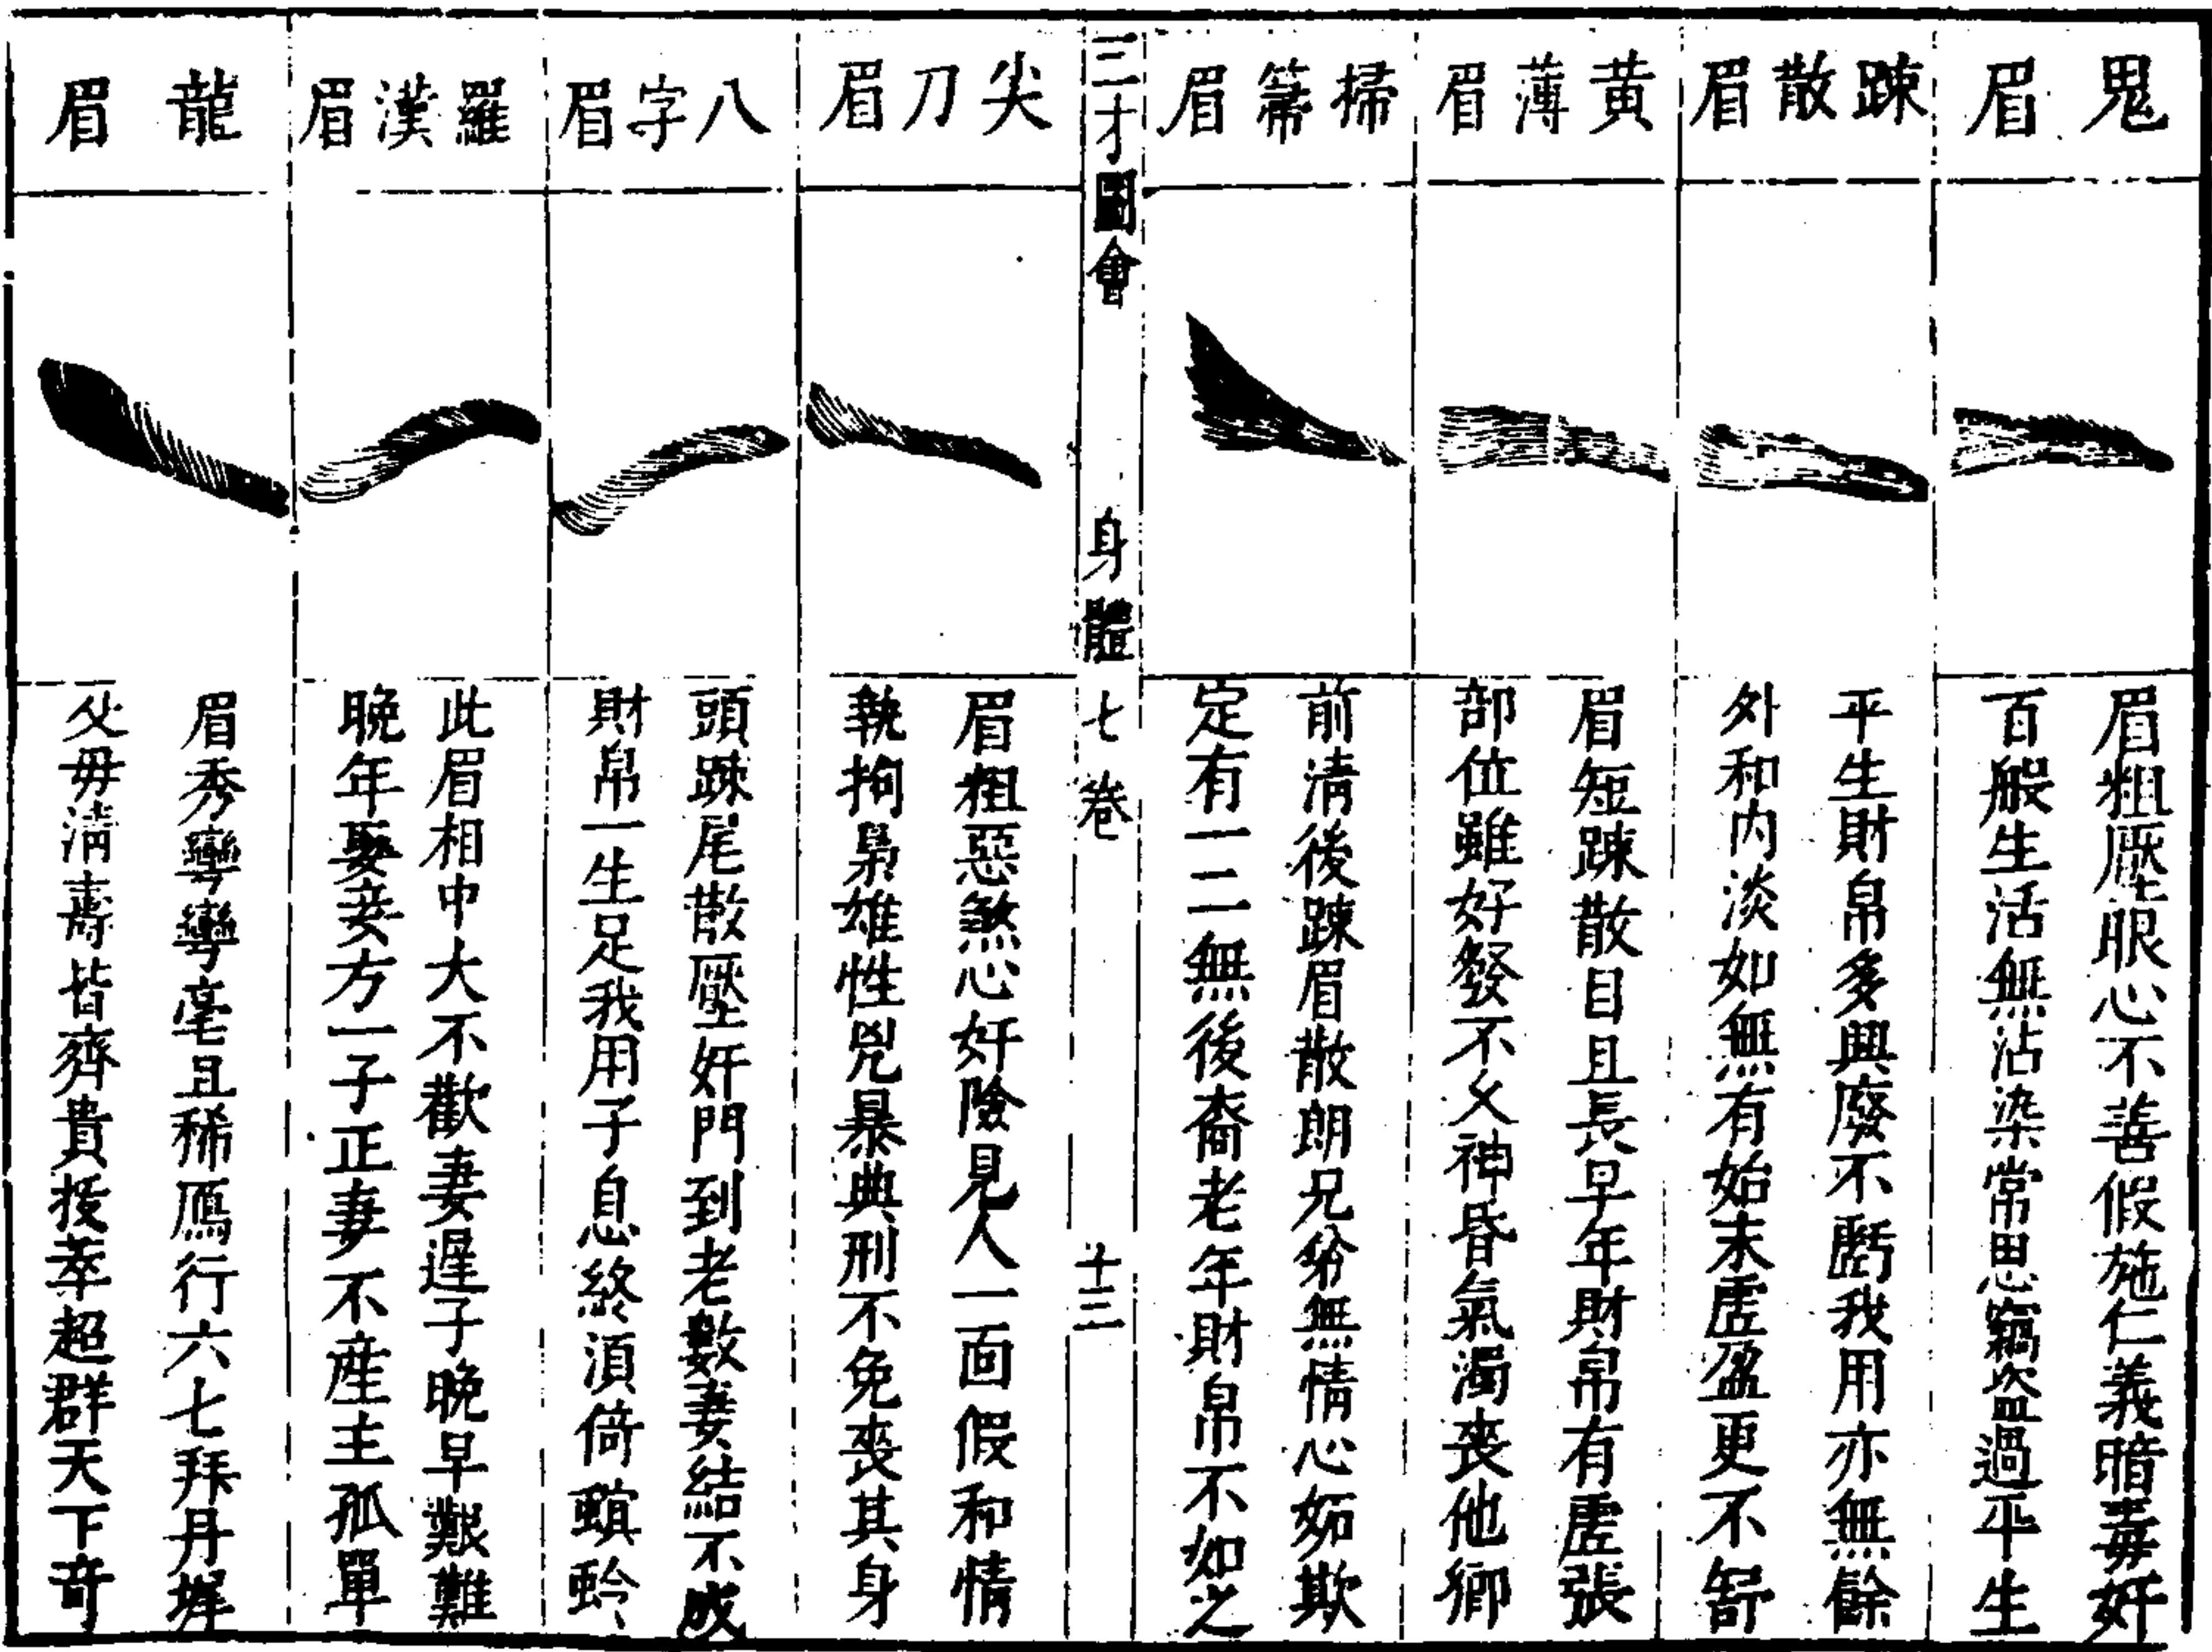 鬼眉
眉粗壓眼心不善假施仁義暗毒奸
百般生活無沾染常思竊盜過平生
踈散眉
平生財帛多興廢不虧我用亦無餘
外和內淡如無有始末虛盈更不舒
黃薄眉
眉短踈散目且長早年財帛有虛張
部位雖好發不久神昏氣濁喪他鄉
掃箒眉
前清後踈眉散朗兄弟無情心妬欺
定有一二無後裔老年財帛不如之
三才圖會 身體七卷 十三
尖刀眉
眉粗惡煞心奸險見人一面假和情
執拘梟雄性兇暴典刑不免喪其身
八字眉
頭踈尾散壓奸門到老數妻結不成
財帛一生足我用子息終須倚螟蛉
羅漢眉
此眉相中大不歡妻遲子晚早艱難
晚年娶妾方一子正妻不産主孤單
龍眉
眉秀彎彎毫且稀鴈行六七拜丹墀
父母清壽皆齊貴拔萃超群天下奇